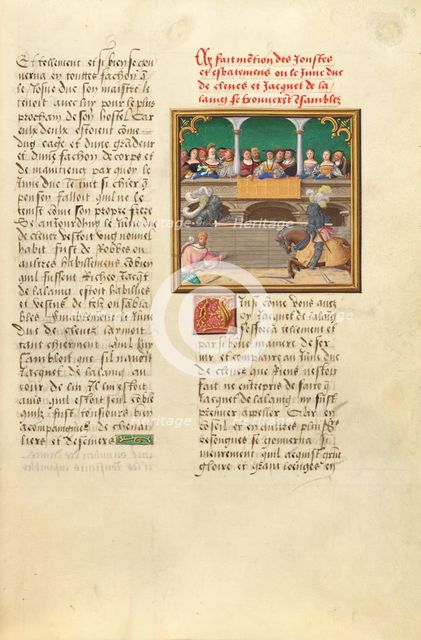 Et tellement et si bien se gou
verna en touttes fachon q̄
le josne duc son maistre le
tenoit avec luy pour le plus
prochain de son hostel Car
eulx deux estoient come
dug eage et dune grandeur
et dune fachon de corps et
de maintiens par quoy le
june duc le tint si chier q̄
penser failloit quil ne le
tenist come son propre frere
Se aujourdhuy le june duc
de cleves vestoit ung nouvel
habit fust de Robbes ou
aultres habillemens combien
quil fussent Riches Jacqt
de lalaing estoit habilles
et vestus de tels en sāblabl
les
duc de cleves larmoit
tant chierement quil luy
sambloit que sil navoit
Jacquet de lalaing au
tour de luy Il
avis quil estoit seul
quil fust tousjours bien
acompaignies de cheval
liers et descuiers
Cy fait mention des joustes
et esbatemens ou le june duc
de cleves et Jacquet de la
laing se trouverēt ēsamblez
Ainsi come vous avez
oy Jacquet de lalaig
sefforca tellement et
par si bonne maniere de ser
vir et complaire au june duc
de cleves que Riens nestoit
fait ne entrepris de faire q̄
Jacquet de lalaing ny fust
premier appeller Car en
conseil et en aultres plus gs
besongnes se gouverna si
meurement quil acquist grāt
gloire et grant loenges en
Heritage
Heritage
Heritage
Heritage